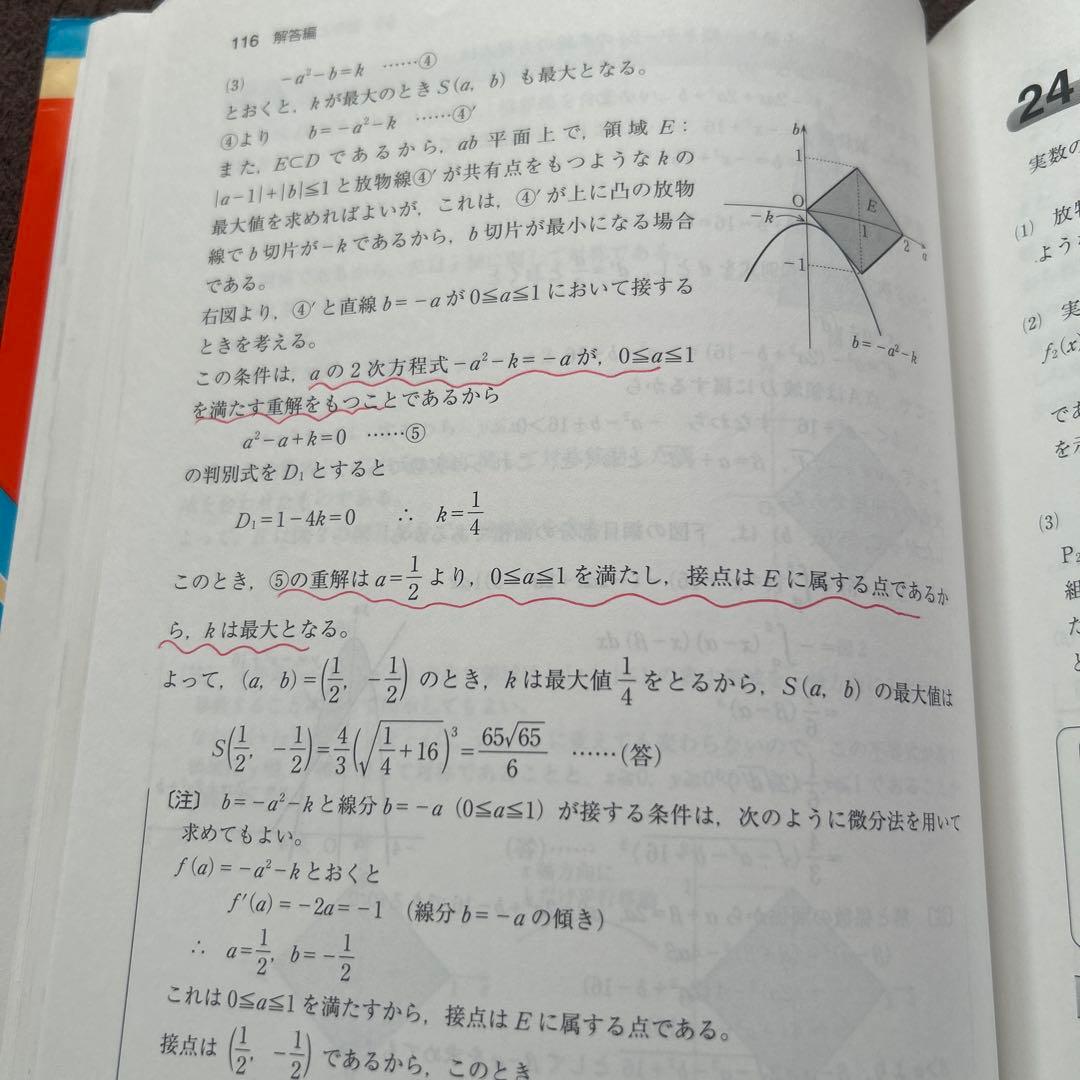 116 解答編
(3) −a²−b=k ……④
とおくと，kが最大のとき S(a, b) も最大となる。
④より b=−a²−k ……④′
また，E⊂D であるから，ab 平面上で，領域 E：
|a−1|+|b|≦1 と放物線④′が共有点をもつような k の
最大値を求めればよいが，これは，④′が上に凸の放物
線で b 切片が −k であるから，b 切片が最小になる場合
である。
右図より，④′と直線 b=−a が 0≦a≦1 において接する
ときを考える。
この条件は，a の 2 次方程式 −a²−k=−a が，0≦a≦1
を満たす重解をもつことであるから
a²−a+k=0 ……⑤
の判別式を D₁ とすると
D₁=1−4k=0 ∴ k=1/4
このとき，⑤の重解は a=1/2 より，0≦a≦1 を満たし，接点は E に属する点であるか
ら，k は最大となる。
よって，(a, b)=(1/2, −1/2) のとき，k は最大値 1/4 をとるから，S(a, b) の最大値は
S(1/2, −1/2)=4/3(√(1/4+16))³=65√65/6 ……(答)
〔注〕 b=−a²−k と線分 b=−a (0≦a≦1) が接する条件は，次のように微分法を用いて
求めてもよい。
f(a)=−a²−k とおくと
f′(a)=−2a=−1 (線分 b=−a の傾き)
∴ a=1/2, b=−1/2
これは 0≦a≦1 を満たすから，接点は E に属する点である。
接点は (1/2, −1/2) であるから，このとき
b
1
O
E
−k
1
2
a
−1
b=−a²−k
24
実数の
(1) 放物
ような
(2) 実
f₂(x)
であ
を示
(3)
P₂
組
た
と